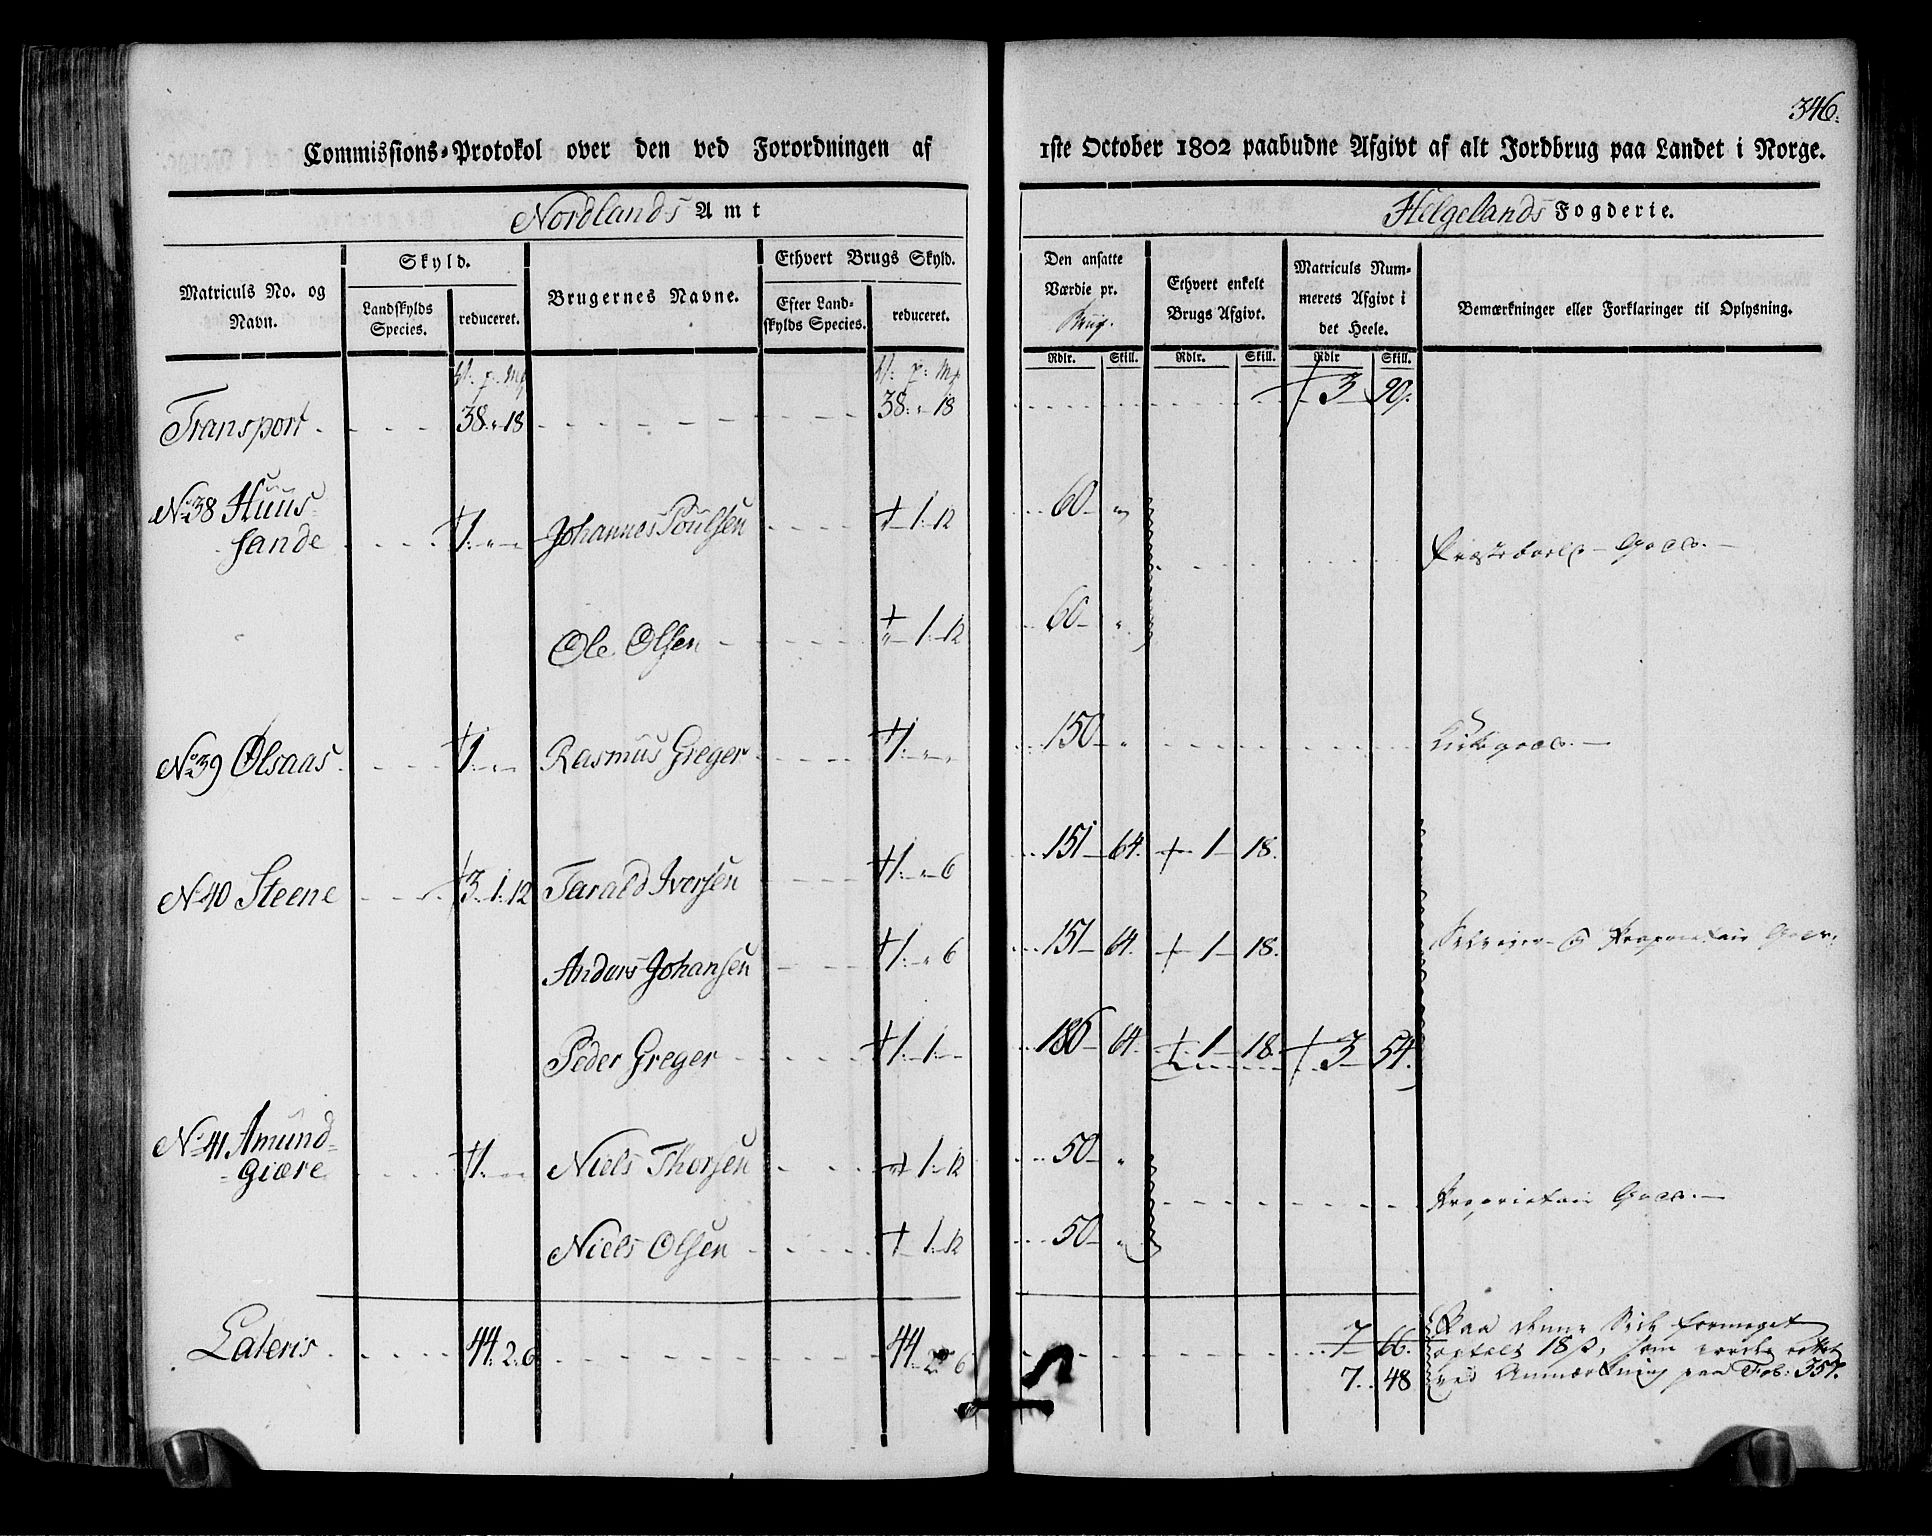 346.
Commissions-Protokol over den ved Forordningen af 1ste October 1802 paabudne Afgivt af alt Jordbrug paa Landet i Norge.
Nordlands Amt
Helgelands Fogderie.
Matriculs No. og Navn.
Skyld.
Landskylds Species.
reduceret.
Brugernes Navne.
Ethvert Brugs Skyld.
Efter Landskylds Species.
reduceret.
Den ansatte Værdie pr. Brug.
Ethvert enkelt Brugs Afgivt.
Matriculs Nummerets Afgivt i det Heele.
Bemærkninger eller Forklaringer til Oplysning.
Rdlr. Skill. Rdlr. Skill. Rdlr Skill.
W: p: Mk W: p: Mk
Transport 38. " 18 38. " 18 3 90.
No 38 Huus-
sande 1. " " Johannes Poulsen 1. 12 60 " Præstebols Gods.
Ole Olsen " 1. 12 60 "
No 39 Olsaas 1. " " Rasmus Greger 1. " " 150 "
No 40 Steene 3. 1. 12 Tarald Iversen 1. " 6 151 64. 1 18.
Anders Johansen 1. " 6 151 64. 1 18. Selveier- og Proprietair Gods.
Peder Greger 1. 1. 186 64. 1 18. 3 54.
No 41 Amund-
giære 1. " " Niels Thorsen " 1. 12 50 " Proprietair Gods.
Niels Olsen 1. 12 50 "
Lateris 44. 2. 6 44. 2. 6 7 66.
7. 48
Paa denne Side formeget
optalt 18 ß, som
ved Anmærkning paa Fol: 357.